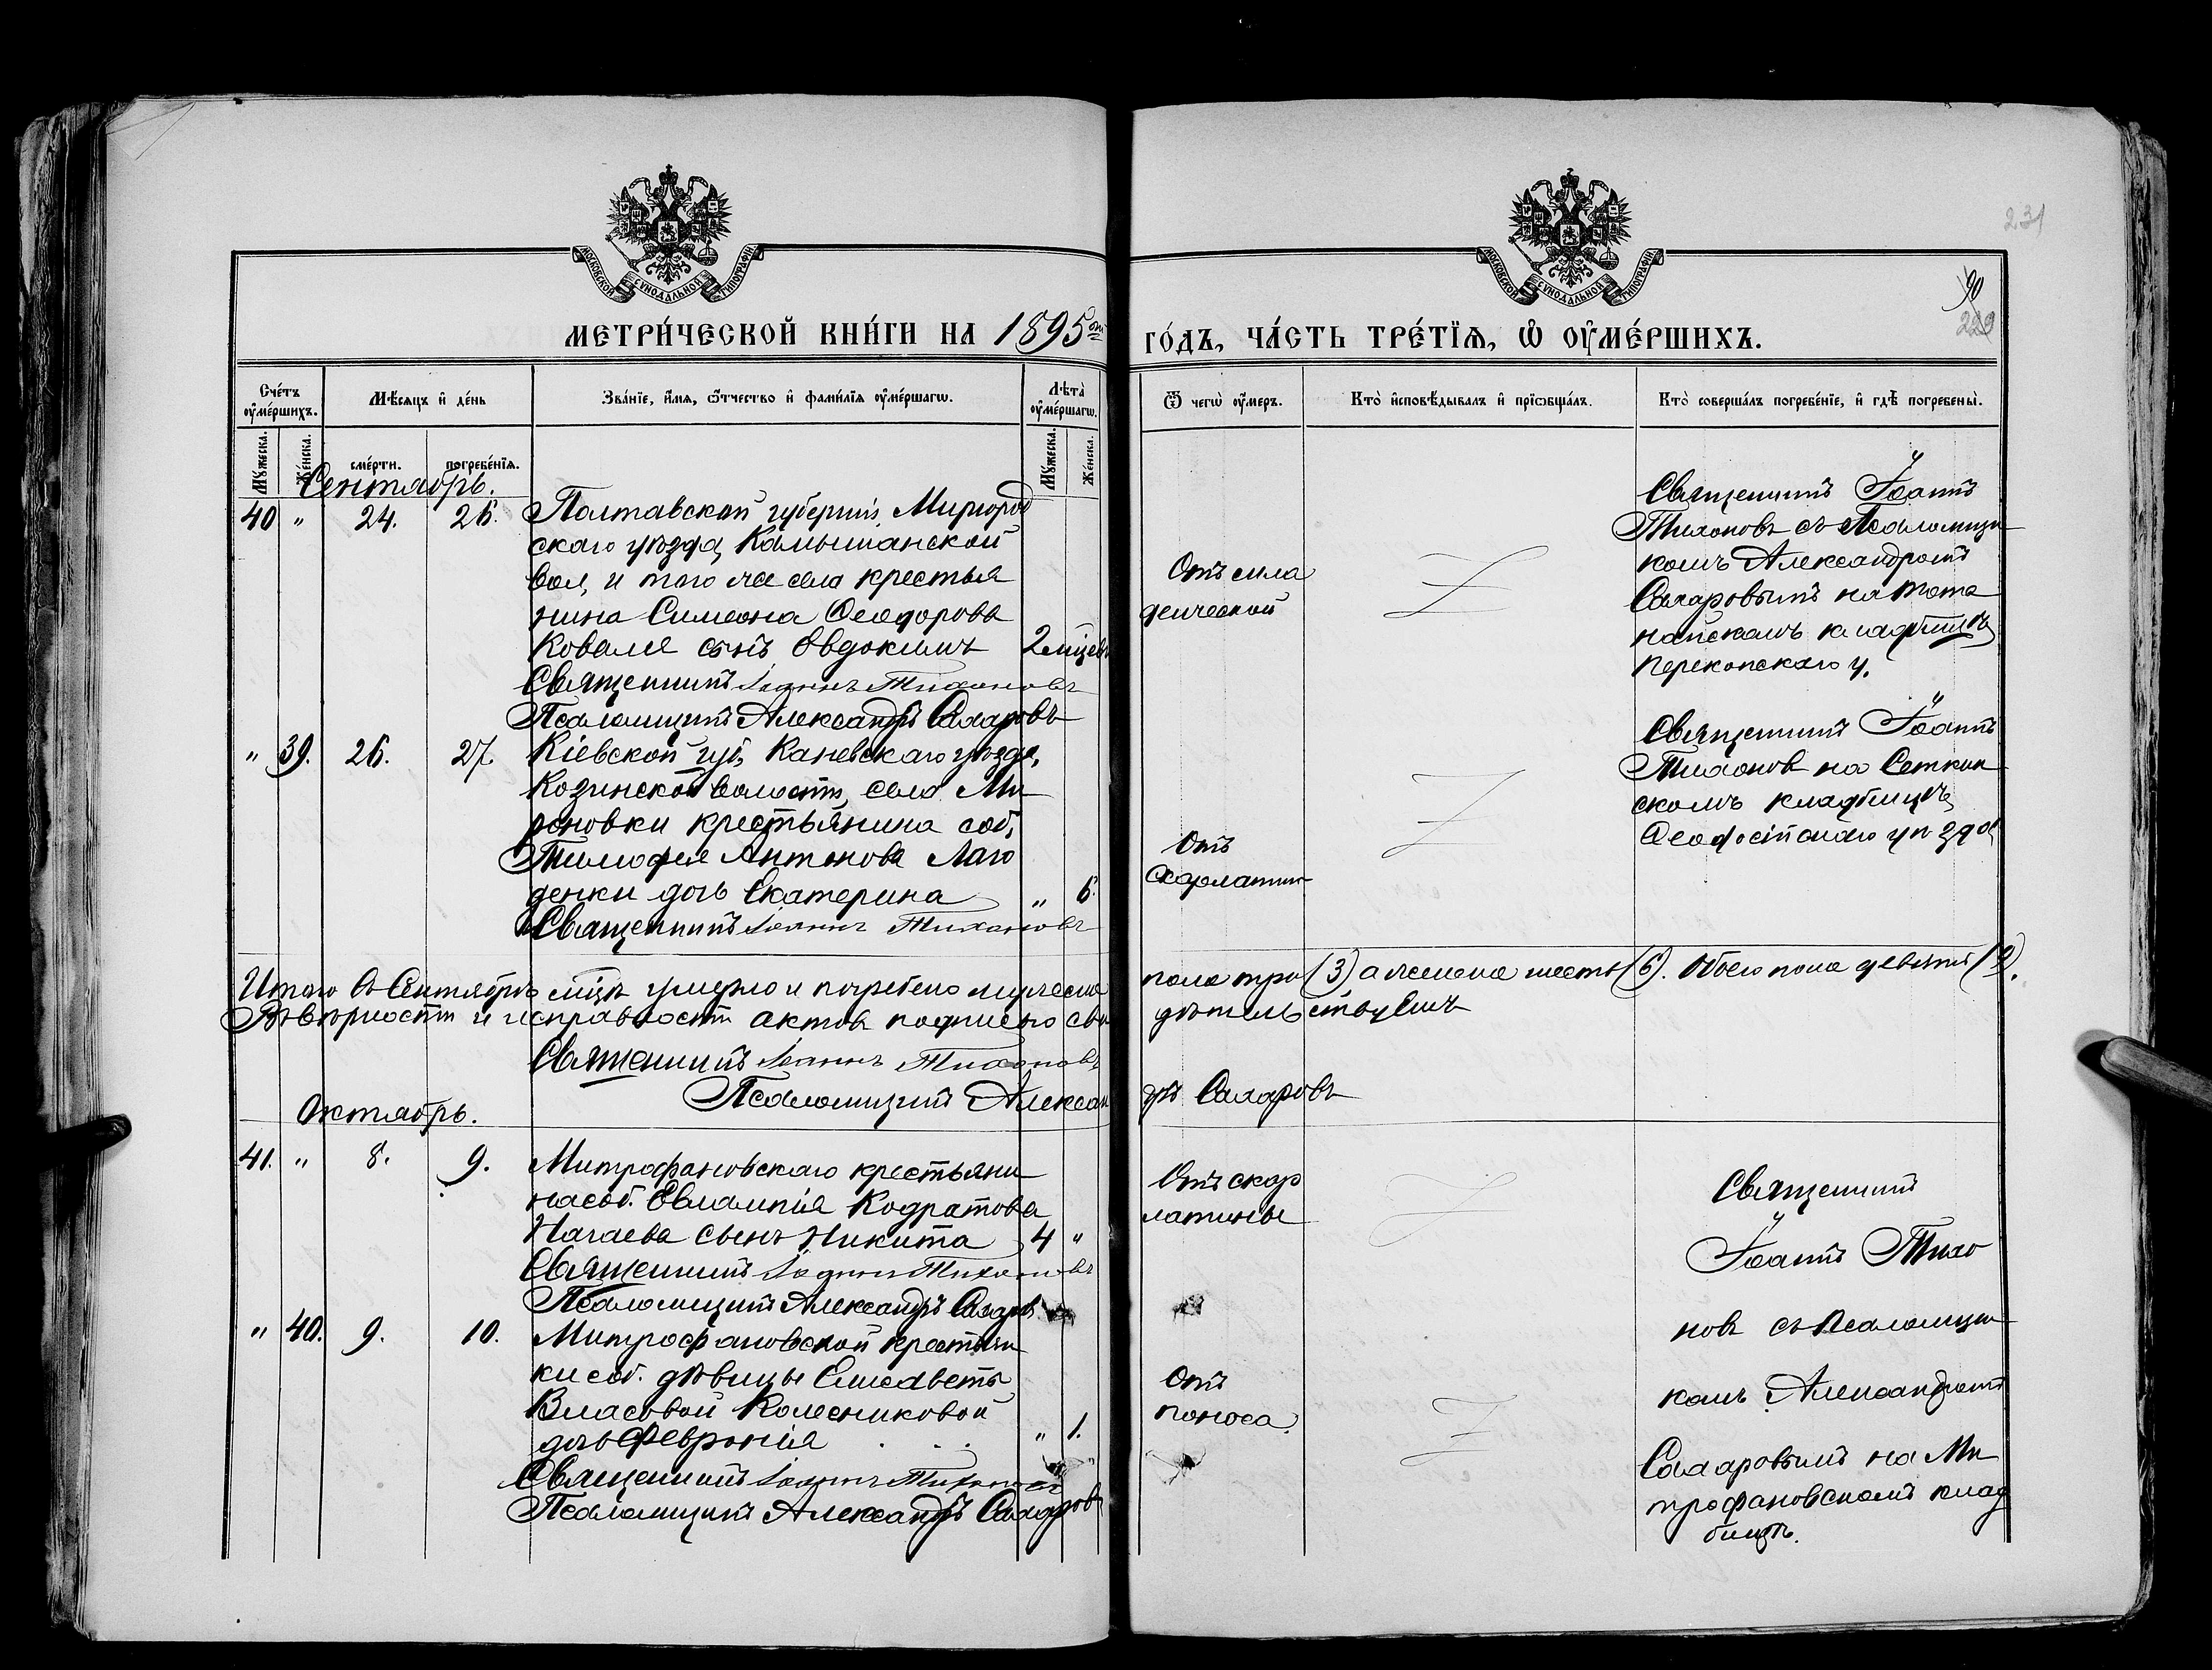 231
90
229
МОСКОВСКОЙ СУНОДАЛЬНОЙ ТИПОГРАФІИ
МОСКОВСКОЙ СУНОДАЛЬНОЙ ТИПОГРАФІИ
МЕТРИ́ЧЕСКОЙ КНИ́ГИ НА 1895 ый
ГО́ДЪ, ЧА́СТЬ ТРЕ́ТІѦ, Ѡ҆ ОУ҆МЕ́РШИХЪ.
Сче́тъ оу҆ме́ршихъ.
Мѣ́сяцъ и҆ де́нь
Зва́нїе, и҆́мя, ѻ҆́тчество и҆ фами́лїя оу҆ме́ршагѡ.
Лѣта̀ оу҆ме́ршагѡ.
Ѿ чегѡ̀ оу҆́меръ.
Кто̀ и҆сповѣ́дывалъ и҆ прїѡбща́лъ.
Кто̀ соверша́лъ погребе́нїе, и҆ гдѣ̀ погребены̀.
Му́жеска.
Же́нска.
сме́рти.
погребе́нїя.
Му́жеска.
Же́нска.
Сентябрь.
40 " 24. 26. Полтавской губерніи, Миргород
скаго уѣзда, Камышанской
вол, и того же села крестья
нина Симеона Ѳеодорова
Коваля сынъ Овдокимъ 2 мцевъ
Священникъ Іоаннъ Тихоновъ
Псаломщикъ Александръ Сахаровъ
Отъ мла
денческой
Священникъ Іоаннъ
Тихоновъ съ Псаломщи
комъ Александромъ
Сахаровымъ на
кладбищѣ
Перекопскаго у.
" 39. 26. 27. Кіевской губ, Каневскаго уѣзда,
Козинской волости, села Ми
роновки крестьянина соб,
Тимофея Антонова Лаго
денки дочь Екатерина " 6.
Священникъ Іоаннъ Тихоновъ
Отъ
Скарлатин
Священникъ Іоаннъ
Тихонов на Сеткин
скомъ кладбищѣ,
Ѳеодосійскаго уѣзда
Итого въ Сентябрѣ мцѣ умерло и погребено мужеска
пола три (3) а женска шесть (6). Обоего пола девять (9).
Въ вѣрности и исправности актов подписью сви
дѣтельствуемъ
Священникъ Іоаннъ Тихоновъ
Псаломщикъ Алексан
дръ Сахаровъ
Октябрь.
41. " 8. 9. Митрофановскаго крестьяни
на соб. Евлампія Кодратова
Нагаева сынъ Никита 4 "
Священникъ Іоаннъ Тихоновъ
Псаломщикъ Александръ Сахаров
Отъ скар
латины
Священникъ
Іоаннъ Тихо
новъ съ Псаломщи
комъ Александромъ
Сахаровымъ на Ми
трофановскомъ клад
бищѣ.
" 40. 9. 10. Митрофановской крестьян
ки соб. дѣвицы Елисаветы
Власовой Колесниковой
дочь Февронія " 1.
Священникъ Іоаннъ Тихоновъ
Псаломщикъ Александръ Сахаровъ
Отъ
поноса.